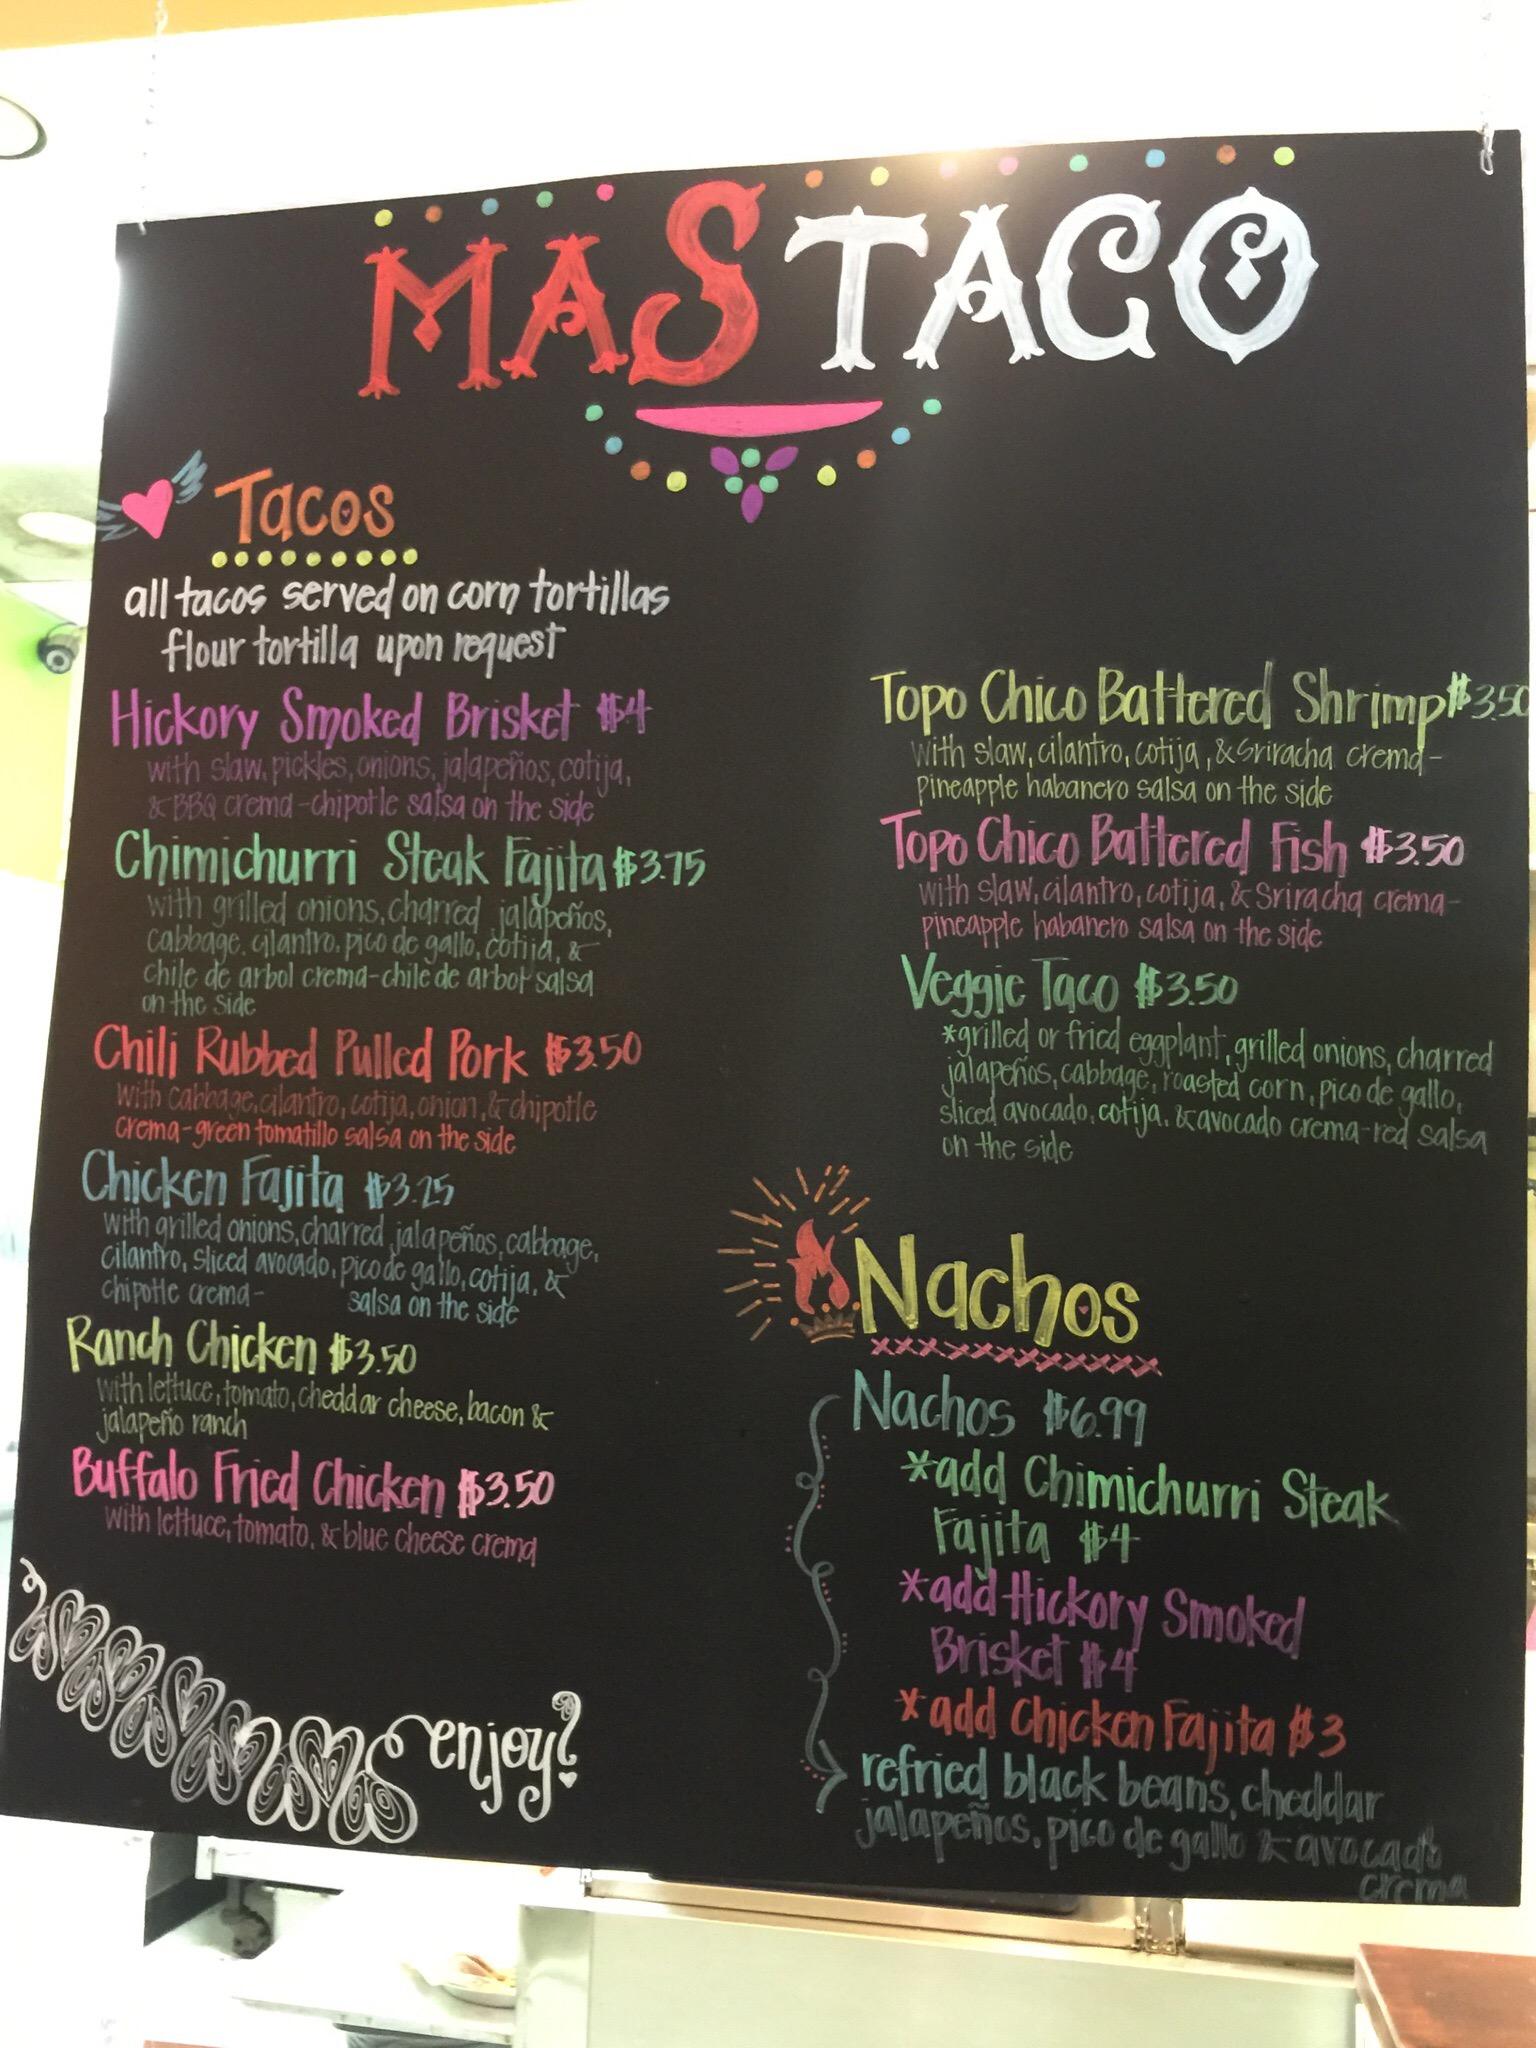 MAS TACO
Tacos
all tacos served on corn tortillas
flour tortilla upon request
Hickory Smoked Brisket $4
with slaw, pickles, onions, jalapeños, cotija,
& BBQ crema-chipotle salsa on the side
Chimichurri Steak Fajita $3.75
with grilled onions, charred jalapeños,
cabbage, cilantro, pico de gallo, cotija, &
chile de arbol crema-chile de arbol salsa
on the side
Chili Rubbed Pulled Pork $3.50
with cabbage, cilantro, cotija, onion, & chipotle
crema-green tomatillo salsa on the side
Chicken Fajita $3.25
with grilled onions, charred jalapeños, cabbage,
cilantro, sliced avocado, pico de gallo, cotija, &
chipotle crema- salsa on the side
Ranch Chicken $3.50
with lettuce, tomato, cheddar cheese, bacon &
jalapeño ranch
Buffalo Fried Chicken $3.50
with lettuce, tomato, & blue cheese crema
enjoy!
Topo Chico Battered Shrimp $3.50
with slaw, cilantro, cotija, & Sriracha crema-
pineapple habanero salsa on the side
Topo Chico Battered Fish $3.50
with slaw, cilantro, cotija, & Sriracha crema-
pineapple habanero salsa on the side
Veggie Taco $3.50
*grilled or fried eggplant, grilled onions, charred
jalapeños, cabbage, roasted corn, pico de gallo,
sliced avocado, cotija, & avocado crema-red salsa
on the side
Nachos
Nachos $6.99
*add Chimichurri Steak
Fajita $4
*add Hickory Smoked
Brisket $4
*add Chicken Fajita $3
refried black beans, cheddar
jalapeños, pico de gallo & avocado
crema